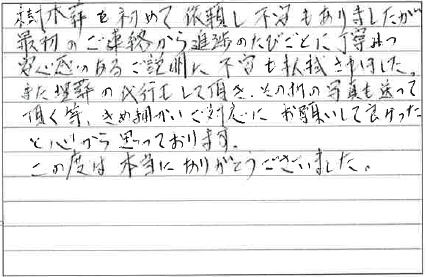 樹木葬を初めて依頼し不安もありましたが
最初のご連絡から進捗のたびごとに丁寧かつ
安心感のあるご説明に不安も払拭されました。
また埋葬の代行もして頂き、その折の写真も送って
頂く等、きめ細かいご対応にお願いして良かった
と心から思っております。
この度は本当にありがとうございました。